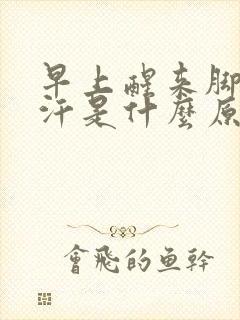 早上醒来脚
汗是什麼原
會飛的鱼幹